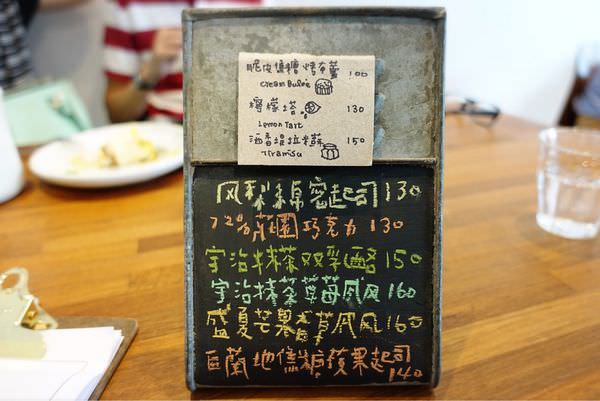 脆皮焦糖烤布蕾 100
Cream Bulee
檸檬塔 130
Lemon Tart
酒香提拉米蘇 150
Tiramisu
风梨綿密起司 130
72%莊園巧克力 130
宇治抹茶双乳酪 150
宇治抹茶草莓夙风 160
盛夏芒菓香草夙风 160
巨蘭地焦糖蘋果起司
140